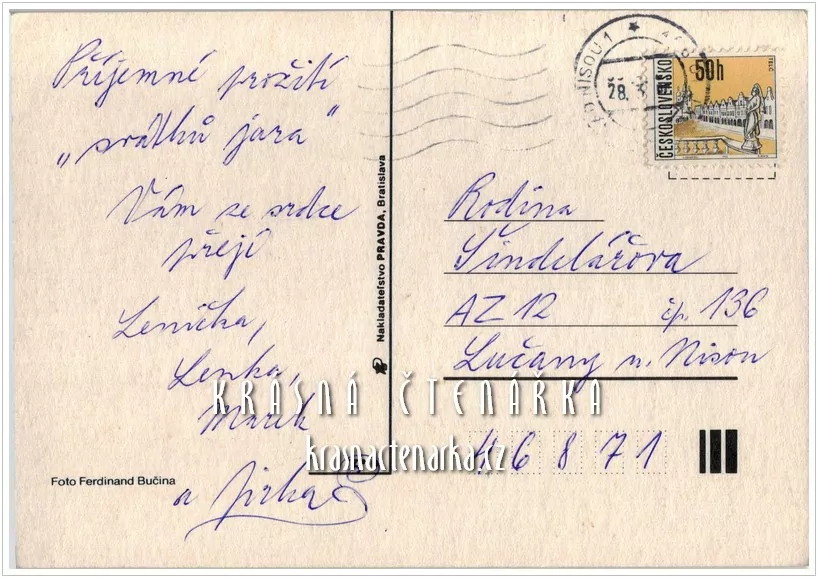 Příjemné prožití
„svátků jara“
Vám ze srdce
přejí
Lenička,
Lenka,
Marek
a Jirka
Foto Ferdinand Bučina
Nakladateľstvo PRAVDA, Bratislava
NISOU 1
28.
ČESKOSLOVENSKO
50h
TELČ
Rodina
Šindelářova
AZ 12 čp. 136
Lučany n. Nisou
468 71
KRÁSNÁ ČTENÁŘKA
krasnactenarka.cz